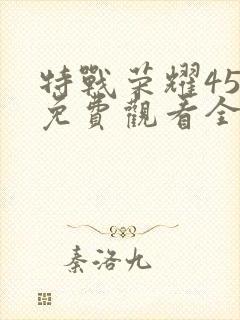 特戰荣耀45
免費觀看全
秦洛九